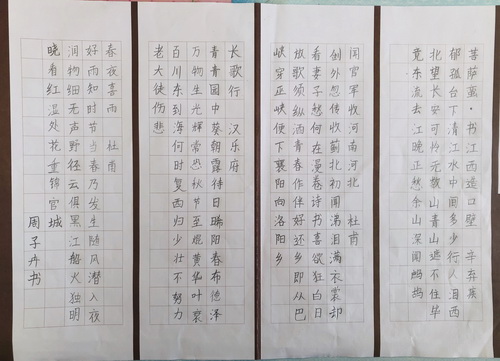 菩萨蛮·书江西造口壁 辛弃疾
郁孤台下清江水中间多少行人泪西
北望长安可怜无数山青山遮不住毕
竟东流去江晚正愁余山深闻鹧鸪
闻官军收河南河北 杜甫
剑外忽传收蓟北初闻涕泪满衣裳却
看妻子愁何在漫卷诗书喜欲狂白日
放歌须纵酒青春作伴好还即从巴
峡穿巫峡便下襄阳向洛阳乡
长歌行 汉乐府
青青园中葵朝露待日晞阳春布德泽
万物生光辉常恐秋节至焜黄华叶衰
百川东到海何时复西归少壮不努力
老大徒伤悲
春夜喜雨 杜甫
好雨知时节当春乃发生随风潜入夜
润物细无声野径云俱黑江船火独明
晓看红湿处花重锦官城
周子丹书